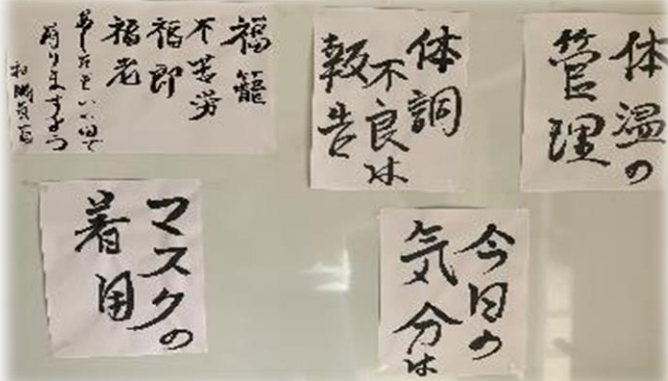 福籠
不苦労
福郎
福老
あしたもいい日で
有りますよう
体調
不良は
報告
体温の
管理
マスクの
着用
今日の
気分は